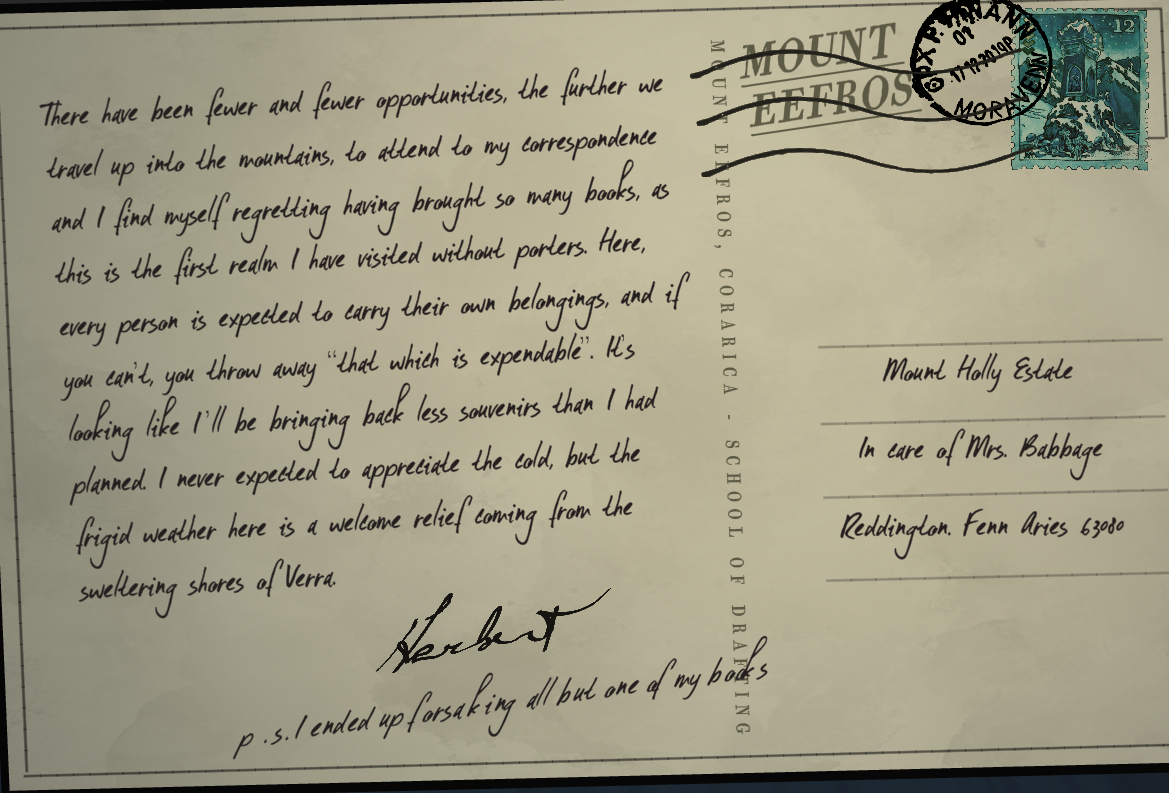 There have been fewer and fewer opportunities, the further we
travel up into the mountains, to attend to my correspondence
and I find myself regretting having brought so many books, as
this is the first realm I have visited without porters. Here,
every person is expected to carry their own belongings, and if
you can't, you throw away “that which is expendable”. It's
looking like I'll be bringing back less souvenirs than I had
planned. I never expected to appreciate the cold, but the
frigid weather here is a welcome relief coming from the
sweltering shores of Verra.
Herbert
p.s. I ended up forsaking all but one of my books
MOUNT EEFROS, CORARICA - SCHOOL OF DRAFTING
MOUNT
EEFROS
MORAVEN
12
Mount Holly Estate
In care of Mrs. Babbage
Reddington. Fenn Aries 63080